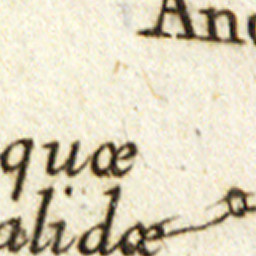 And
quæ
alidæ